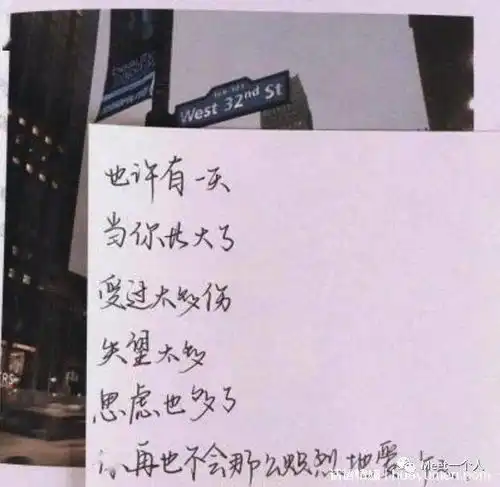 West 32nd St
也许有一天
当你长大了
受过太多伤
失望太多
思虑也多了
再也不会那么烈地爱
一个人